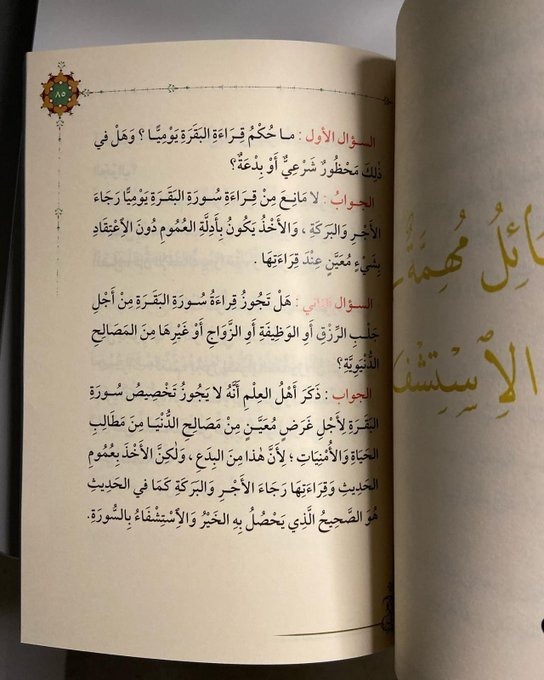 ٨٥
السؤال الأول : مـا حُكْمُ قِرَاءَةِ البَقَرَةِ يَوْمِيًّا ؟ وَهَلْ في
ذٰلِكَ مَحْظُورٌ شَرْعِيٌّ أَوْ بِدْعَةٌ؟
الجوابُ : لا مَانِعَ مِنْ قِرَاءَةِ سُورَةِ البَقَرَةِ يَوْمِيًّا رَجَاءَ
الأَجْرِ وَالبَرَكَةِ ، وَالأَخْذُ يَكُونُ بِأَدِلَّةِ العُمُومِ دُونَ الاِعْتِقَادِ
بِشَيْءٍ مُعَيَّنٍ عِنْدَ قِرَاءَتِهَا .
السؤال الثاني : هَلْ تَجُوزُ قِرَاءَةُ سُورَةِ البَقَرَةِ مِنْ أَجْلِ
جَلْبِ الرِّزْقِ أَوِ الوَظِيفَةِ أَوِ الزَّوَاجِ أَوْ غَيْرِهَا مِنَ المَصَالِحِ
الدُّنْيَوِيَّةِ؟
الجواب : ذَكَرَ أَهْلُ العِلْمِ أَنَّهُ لا يَجُوزُ تَخْصِيصُ سُورَةِ
البَقَرَةِ لِأَجْلِ غَرَضٍ مُعَيَّنٍ مِنْ مَصَالِحِ الدُّنْيَا مِنْ مَطَالِبِ
الحَيَاةِ وَالأُمْنِيَاتِ ؛ لِأَنَّ هٰذا مِنَ البِدَعِ ، وَلٰكِنَّ الأَخْذَ بِعُمُومِ
الحَدِيثِ وَقِرَاءَتِهَا رَجَاءَ الأَجْرِ وَالبَرَكَةِ كَمَا في الحَدِيثِ
هُوَ الصَّحِيحُ الَّذِي يَحْصُلُ بِهِ الخَيْرُ وَالاِسْتِشْفَاءُ بِالسُّورَةِ.
مُهِمَّةٌ